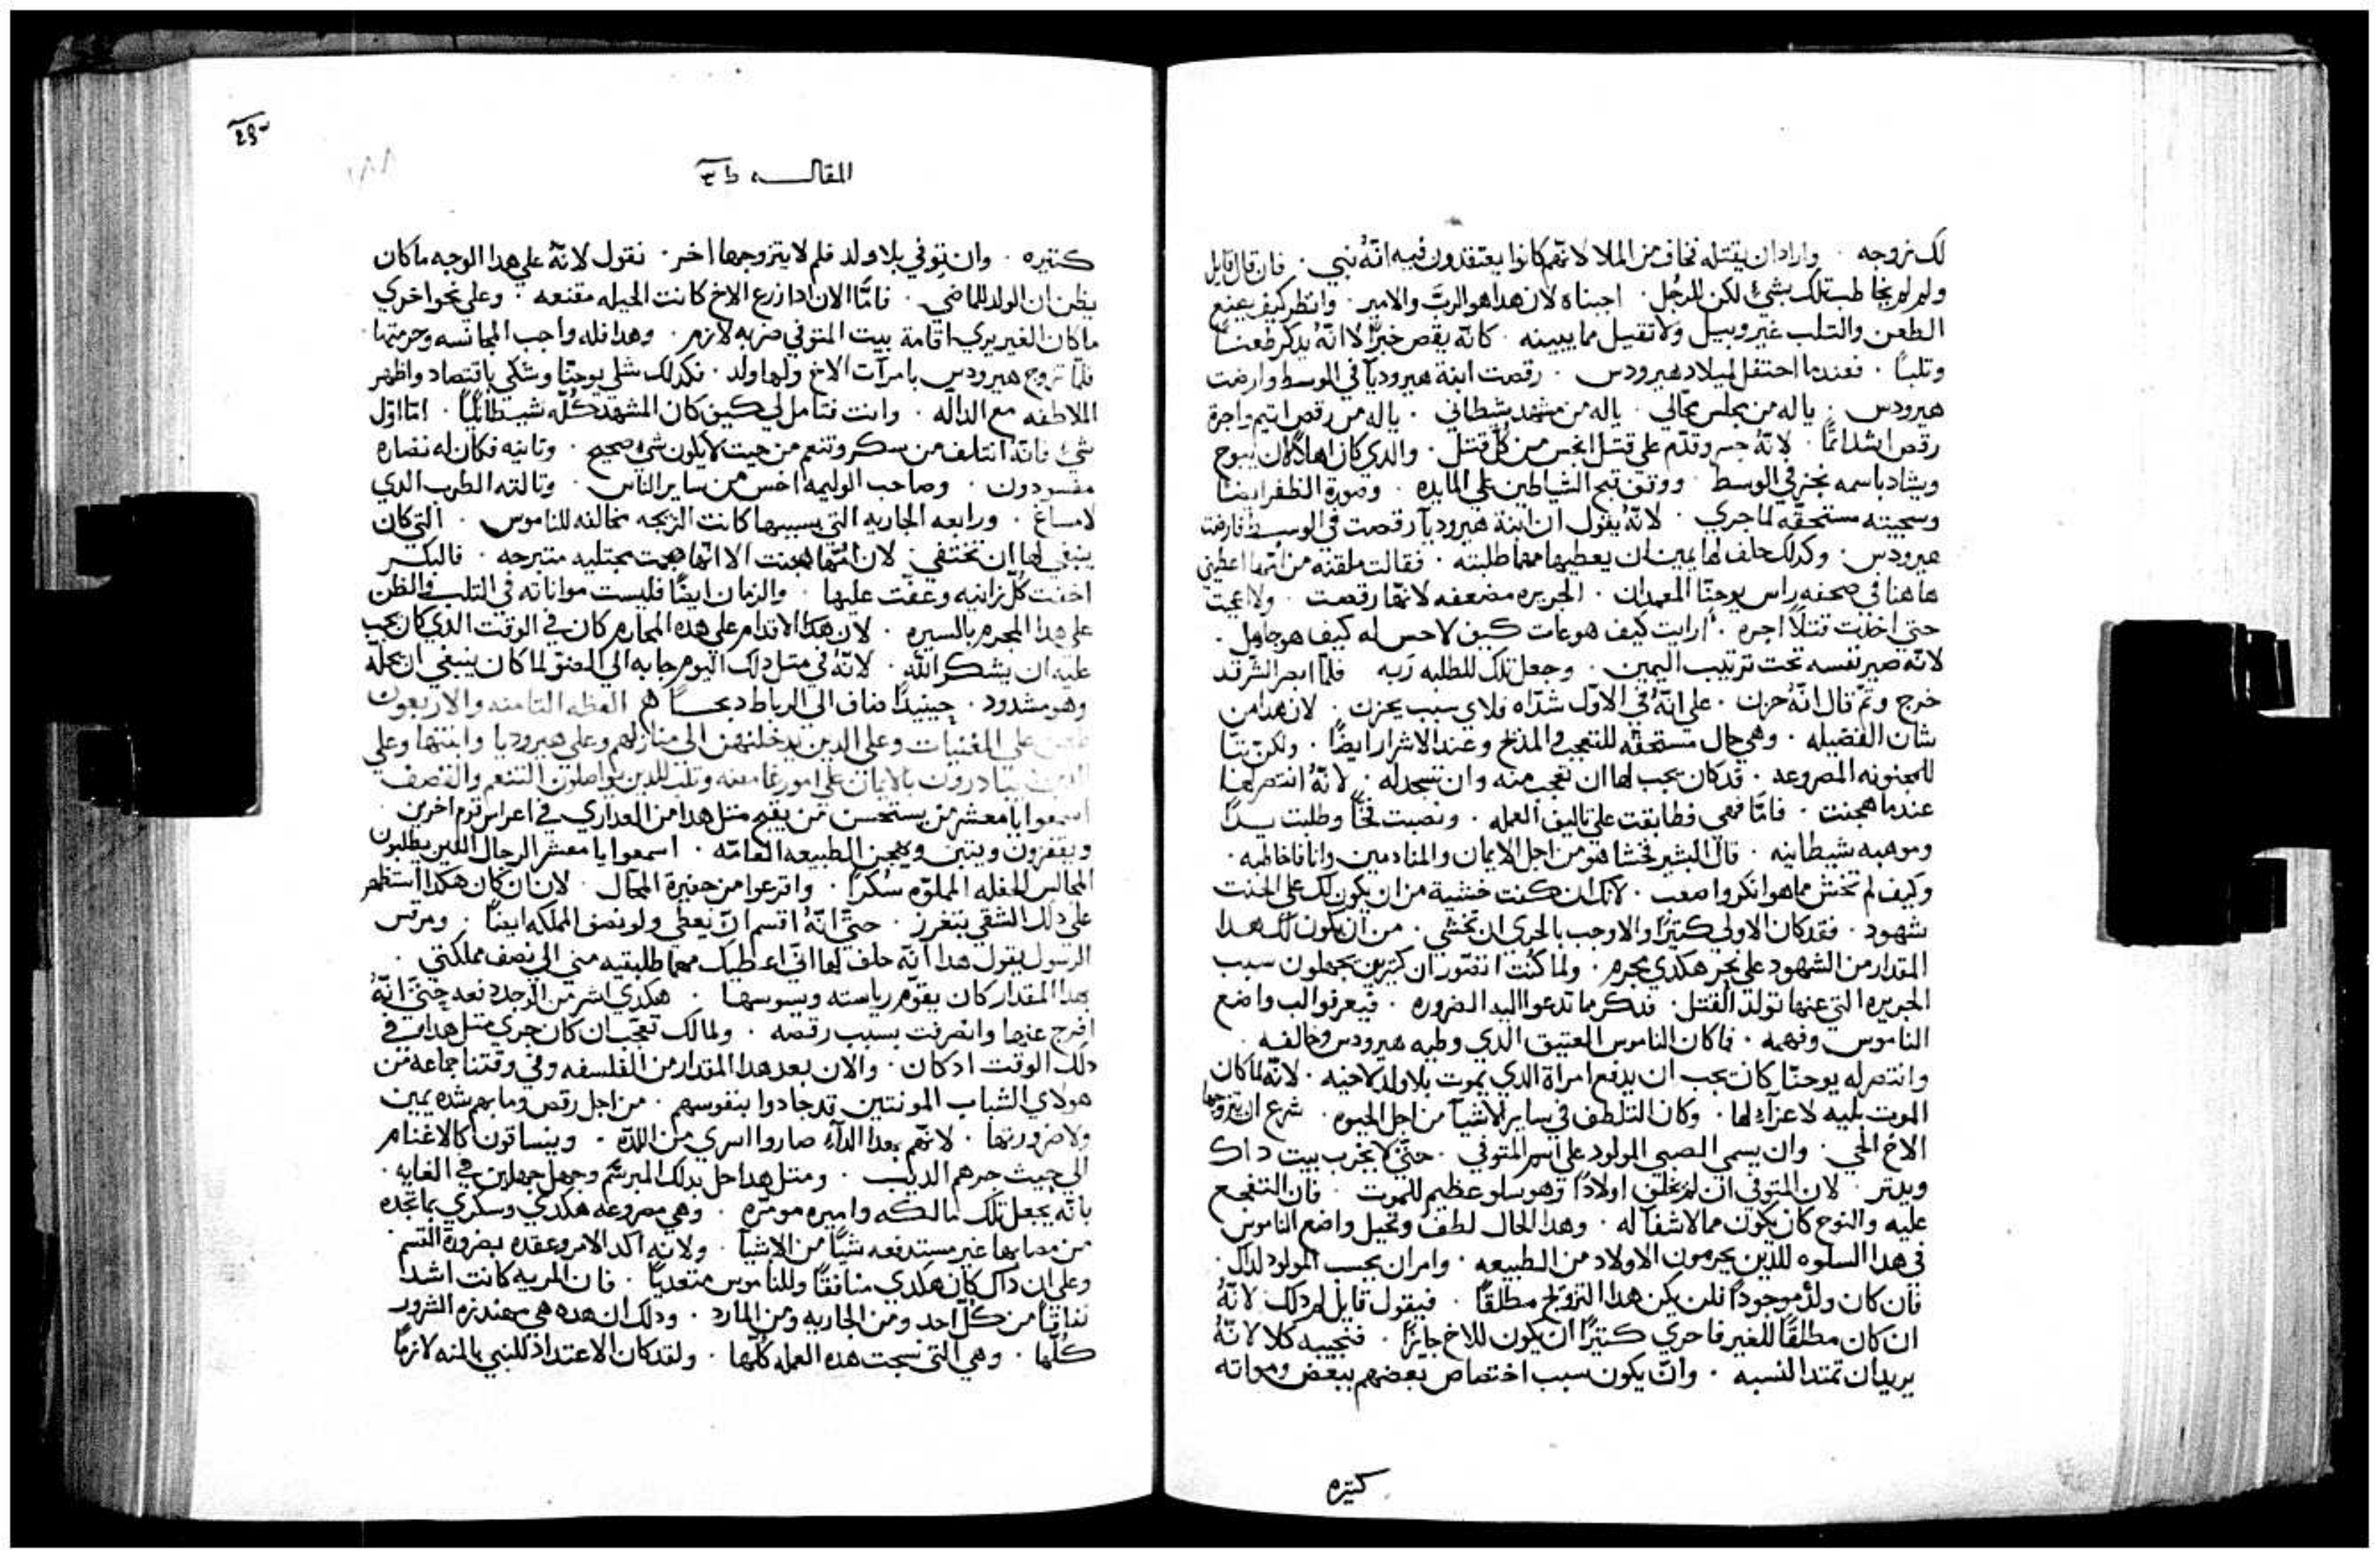 لك نزوجه · واراد ان يقتله فخاف من الملا لانهم كانوا يعتقدون فيه انه نبي · فان قال قايل
ولم لم يخاطب تلك بشي لكن الرجل · اجبناه لان هدا هو الرب والامير · وانظر كيف يضع
الطعن والتلب غير وبيل ولا تقيل مما يبينه · كانه يقص خبرًا لا انه يدكر طعنًا
وتلبًا · فعندما احتفل لميلاد هيرودس · رقصت ابنة هيروديا في الوسط وارضت
هيرودس · ياله من مجلس محالي · ياله من مشهد شيطاني · ياله من رقص اتيم واجرة
رقص اشد اتمًا · لانه جسر وقدم علي قتل انجس من كل قتل · والدي كان اهلًا لان يتوج
ويشاد باسمه نحر في الوسط · ووتق تبح الشياطين علي المايده · وصورة الظفر ايضًا
وسجيته مستحقه لما جري · لانه يقول ان ابنة هيروديا رقصت في الوسط فارضت
هيرودس · وكدلك حلف لها يمين ان يعطيها مهما طلبته · فقالت ملقنه من امها اعطيني
هاهنا في صحفه راس يوحنا المعمدان · الجريره مضعفه لانها رقصت · ولا اعجبت
حتي اخدت قتلًا اجره · ارايت كيف هو عات كيف لا حس له كيف هو جاهل ·
لانه صير نفسه تحت ترتيب اليمين · وجعل تلك للطلبه ربه فلما ابصر الشر قد
خرج وتم قال انه حزن · علي انه في الاول شداه فلاي سبب يحزن · لان هدا من
شان الفضيله · وهي حال مستحقه للتعجب والمدح وعند الاشرار ايضًا · ولكن تبًا
للمجنونه المصروعه · قد كان يجب لها ان تعجب منه وان تسجد له · لانه انتصر لها
عندما هجنت · فاما هي فطابقت علي تاليف العمله · ونصبت فخًا وطلبت يدًا
وموهبه شيطانيه · قال البشير فخشا هو من اجل الايمان والمنادمين وانا فاخاطبه ·
وكيف لم تخش مما هو انكر واصعب · لانك ان كنت خشية من ان يكون لك علي الحنت
شهود · فقد كان الاولي كتيرًا والاوجب بالحري ان تخشي · من ان يكون لك هدا
المقدار من الشهود علي نحر هكدي مجرم · ولما كنت اتصور ان كتيرين يجهلون سبب
الجريره التي عنها تولد القتل · فدكر ما تدعوا اليه الضروره · فيعرفوا لب واضع
الناموس وفهمه · فما كان الناموس العتيق الدي وطيه هيرودس وخالفه ·
وانتصر له يوحنا كان يجب ان يدفع امراة الدي يموت بلا ولد لاخيه · لانه لما كان
الموت بليه لا عزآ لها · وكان التلطف في ساير الاشيآ من اجل الحيوه · شرع ان يتزوجها
الاخ الحي · وان يسمي الصبي المولود علي اسم المتوفي · حتي لا يخرب بيت داك
ويدتر · لان المتوفي ان لم يخلف اولادًا وهو سلو عظيم للموت · فان التفجع
عليه والنوح كان يكون مما لا شفا له · وهدا الحال لطف وتحيل واضع الناموس
في هدا السلوه للدين يحرمون الاولاد من الطبيعه · وامر ان يحسب المولود لدلك ·
فان كان ولد موجودًا فلن يكن هدا التزويج مطلقًا · فيقول قايل لم دلك لانه
ان كان مطلقًا للغير فاحري كتيرًا ان يكون للاخ جايزًا · فنجيبه كلا لانه
يريد ان تمتد النسبه · وان يكون سبب اختصاص بعضهم ببعض ومواته
كتيره
المقاله
كتيره · وان توفي بلا ولد فلم لا يتزوجها اخر · نقول لانه علي هدا الوجه ما كان
يظن ان الولد للماضي · فاما الان ادا زرع الاخ كانت الحيله مقنعه · وعلي نحو اخري
ما كان الغير يري اقامة بيت المتوفي ضربه لازم · وهدا فله واجب المجانسه وحرمتها ·
فلما تزوج هيرودس بامرآت الاخ ولها ولد · فكدلك شلي يوحنا وشكي باقتصاد واظهر
الملاطفه مع الداله · وانت فتامل لي كيف كان المشهد كله شيطانيًا · اما اول
شي فانه ائتلف من سكر وتنعم من حيت لا يكون شي صحيح · وتانيه فكان له نضاره
مفسودون · وصاحب الوليمه اخس من ساير الناس · وتالته الطرب الدي
لا مساغ · ورابعه الجاريه التي بسببها كانت الزيجه مخالفه للناموس · التي كان
ينبغي لها ان تختفي · لان امها هجنت الا انها هجمت مجتليه متبرجه · فالبكر
اخفت كل زانيه وعفت عليها · والزمان ايضًا فليست مواناته في التلب والظن
علي هدا المجرم بالسيره · لان هدا الاقدام علي هده المحارم كان في الوقت الدي كان يجب
عليه ان يشكر الله · لانه في متل دلك اليوم جا به الي الضو لما كان ينبغي ان يحله
وهو مشدود · حينيدًا ضاف الي الرباط دبحًا العظه التامنه والاربعون
علي المغنيات وعلي الدين يدخلنهن الي منازلهم وعلي هيروديا وابنتها وعلي
يتبادرون بالايمان علي امور غامضه وتلب للدين يواصلون التنعم والقصف
اسمعوا يا معشر من يستحسن من يقبح متل هدا من العداري في اعراس قوم اخرين ·
ويقفزون ويتبن ويهجين الطبيعه العامه · اسمعوا يا معشر الرجال الدين يطلبون
المجالس الحفله المملوه سكرًا · وافزعوا من حفيرة المحال · لان ان كان هكدا استظهر
علي دلك الشقي بتغرز · حتي انه اقسم ان يعطي ولو نصف المملكه ايضًا · ومرقس
الرسول يقول هدا انه حلف لها اني اعطيك مهما طلبتيه مني الي نصف مملكتي ·
بهدا المقدار كان يقوم رياسته ويسوسها · هكدي اشر من الوجد دفعه حتي انه
افرج عنها وانصرفت بسبب رقصه · ولما لك تعجب ان كان جري متل هدا في
دلك الوقت اد كان · والان بعد هدا المقدار من الفلسفه وفي وقتنا جماعه من
هولاي الشباب المونتين قد جادوا بنفوسهم · من اجل رقص وما بهم شده يمين
ولا ضرورتها · لانهم بهدا الدآء صاروا اسري من اللده · وينساقون كالاغنام
الي حيت جرهم الديب · ومتل هدا حل بدلك المبرسم وجهل جهلين في الغايه ·
بانه يجعل تلك مالكه واميره مومره · وهي مصروعه هكدي وسكري بما تجده
من مصابها غير مستدفعه شيًا من الاشيآ · ولانه اكد الامر وعقده بضرورة القسم
وعلي ان داك كان هكدي منافقًا وللناموس متعديًا · فان المريه كانت اشد
نفاقًا من كل احد ومن الجاريه ومن المارد · ودلك ان هده هي مهندزه الشرور
كلها · وهي التي نسجت هده العمله كلها · ولقد كان الاعتداد للنبي بالمنه لازمًا